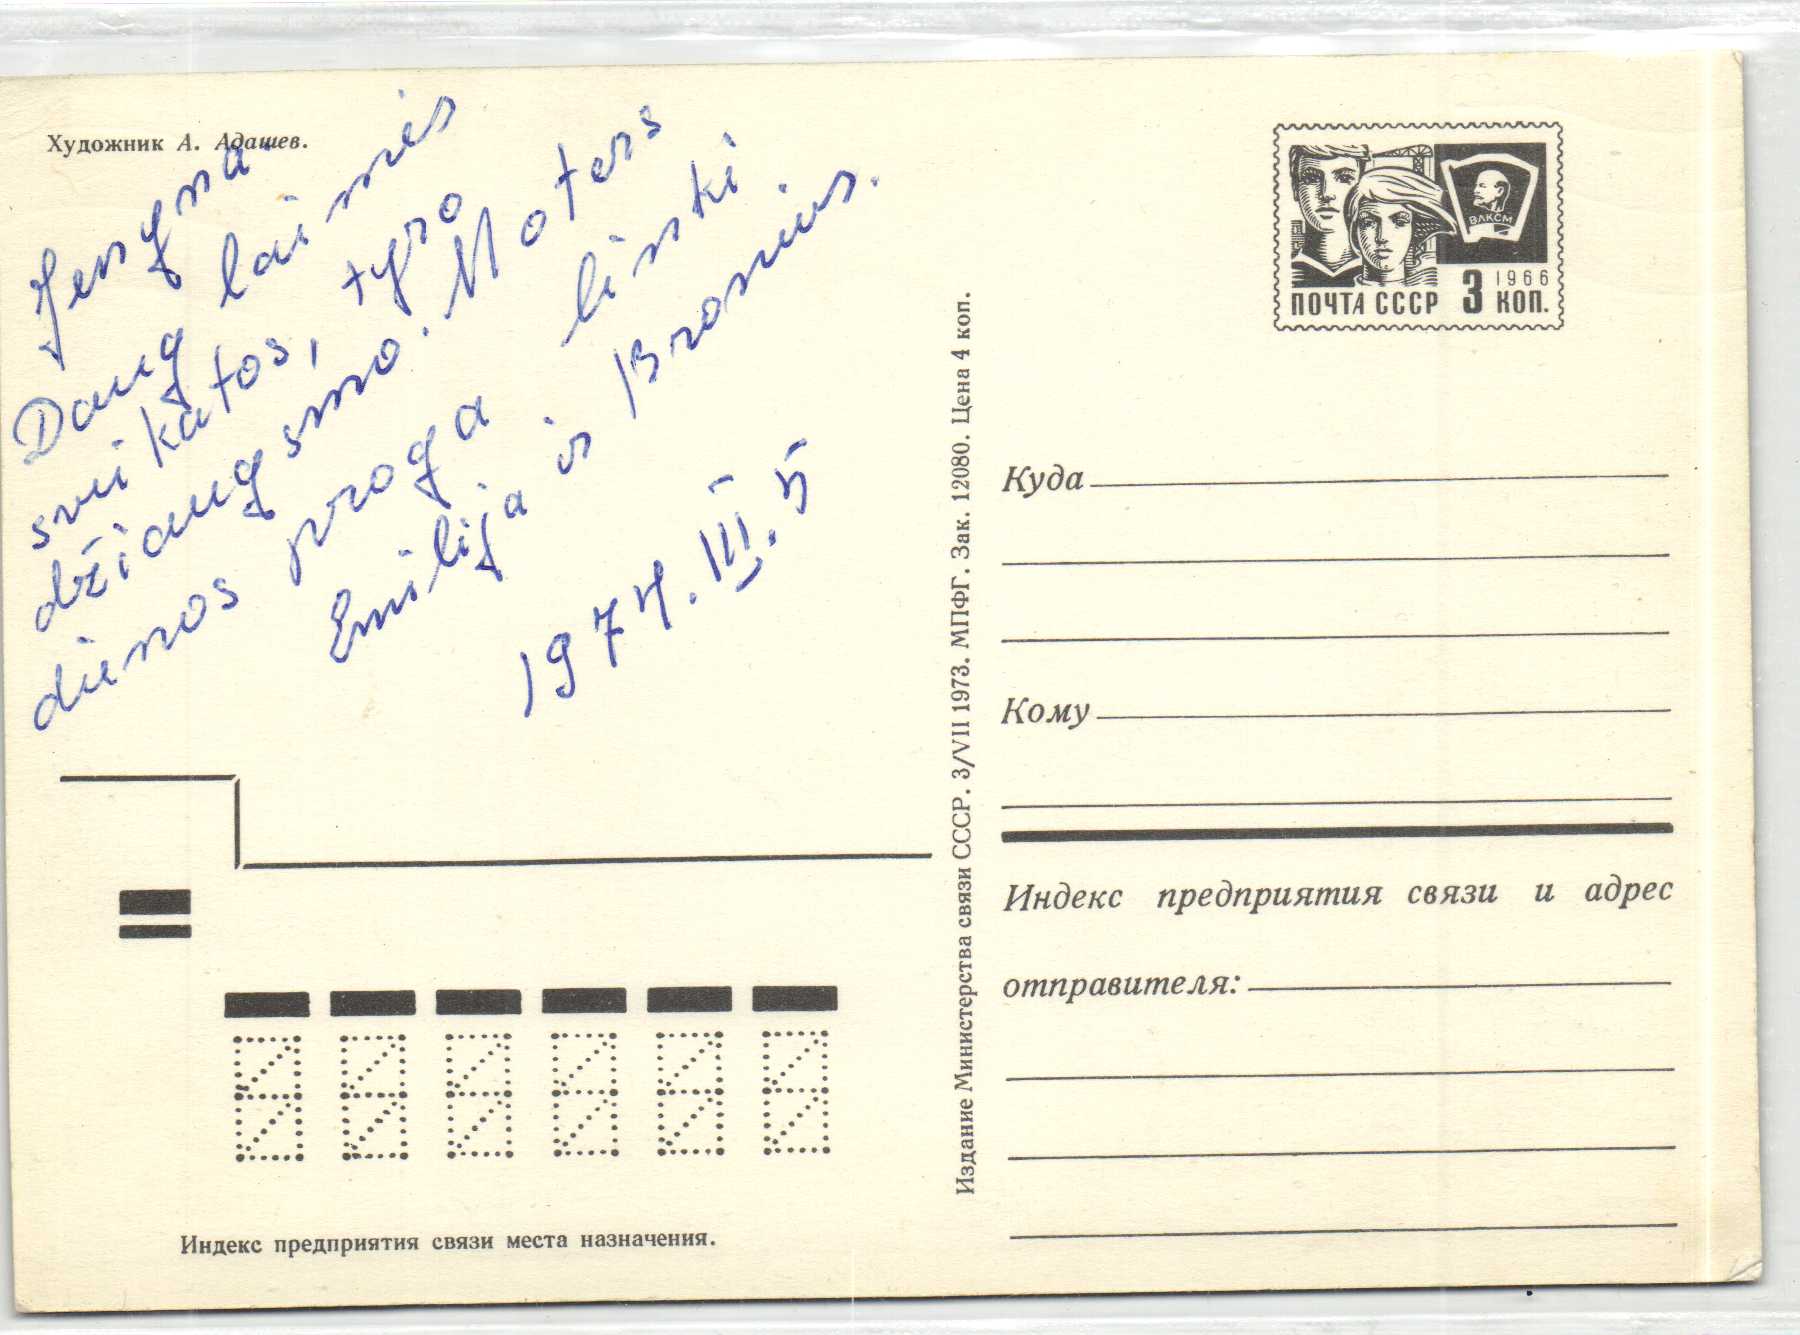 Художник А. Адашев.
Jenyna.
Daug laimės
sveikatos, tyro
džiaugsmo. Moters
dienos proga linki
Emilija ir Bronius.
1974.III.5
ВЛКСМ
1966
ПОЧТА СССР 3 КОП.
Издание Министерства связи СССР. 3/VII 1973. МПФГ. Зак. 12080. Цена 4 коп.
Куда
Кому
Индекс предприятия связи и адрес
отправителя:
Индекс предприятия связи места назначения.